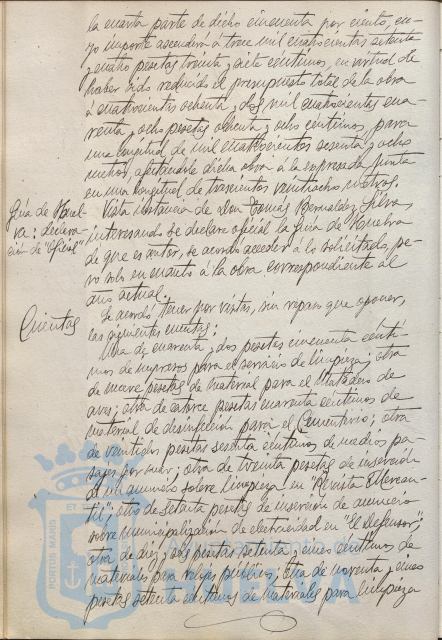 la cuarta parte de dicho cincuenta por ciento, cu-
yo importe ascenderá á trece mil cuatrocientas setenta
y cuatro pesetas treinta y siete céntimos, en virtud de
haber sido reducido el presupuesto total de la obra
á cuatrocientas ochenta y dos mil cuatrocientas cua-
renta y ocho pesetas ochenta y ocho céntimos, para
una longitud de mil cuatrocientos sesenta y ocho
metros, afectándole dicha obra á la expresada Junta
en una longitud de trescientos veintiocho metros.
Guía de Huel-
va: declara-
ción de "Oficial"
Vista instancia de Don Tomás Bernaldez Silva,
interesando se declare oficial la Guía de Huelva
de que es autor, se acordó acceder á lo solicitado, pe-
ro solo en cuanto á la obra correspondiente al
año actual.
Cuentas
Se acordó tener por vistas, sin reparo que oponer,
las siguientes cuentas:
Una de cuarenta y dos pesetas cincuenta cénti-
mos de impresos para el servicio de limpieza; otra
de nueve pesetas de material para el Matadero de
aves; otra de catorce pesetas cuarenta céntimos de
material de desinfección para el Cementerio; otra
de veintiocho pesetas sesenta céntimos de medios pa-
sajes por mar; otra de treinta pesetas de inserción
de un anuncio sobre limpieza en "Revista Mercan-
til"; otra de setenta pesetas de inserción de anuncio
sobre municipalización de electricidad en "El Defensor";
otra de diez y seis pesetas setenta y cinco céntimos de
materiales para relojes públicos; otra de noventa y cinco
pesetas setenta céntimos de materiales para limpieza
PORTUS MARIS ET